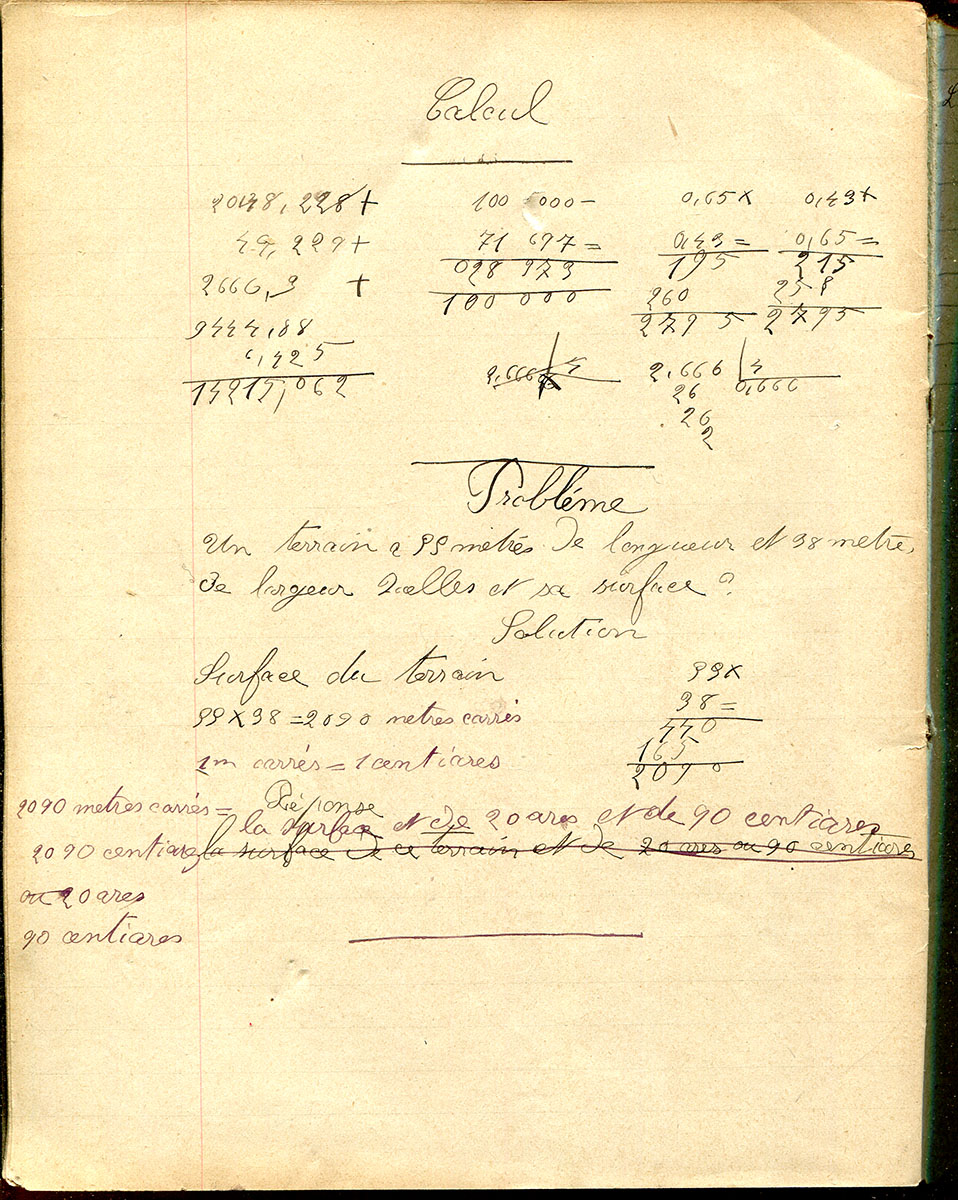 Calcul
2048,228+ 100 000- 0,65x 0,43x
49,229+ 71 027= 0,43= 0,65=
2666,3 + 028 973 195 215
9444,88 100 000 260 258
6,425 279 5 2795
14215,062 2,666 4 2,666 4
0,666
26
26
2
Probléme
Un terrain a 55 metrés de longueur et 38 metre,
de largeur Quelles et sa surface ?
Solution
Surface du terrain 55x
38=
55 x 38 = 2090 metres carrés 440
165
1m carrés = 1 centiares 2090
Réponse
2090 metres carrés = la surface et de 20 ares et de 90 centiares
2090 centiares la surface de ce terrain et de 20 ares ou 90 centiares
ou 20 ares
90 centiares